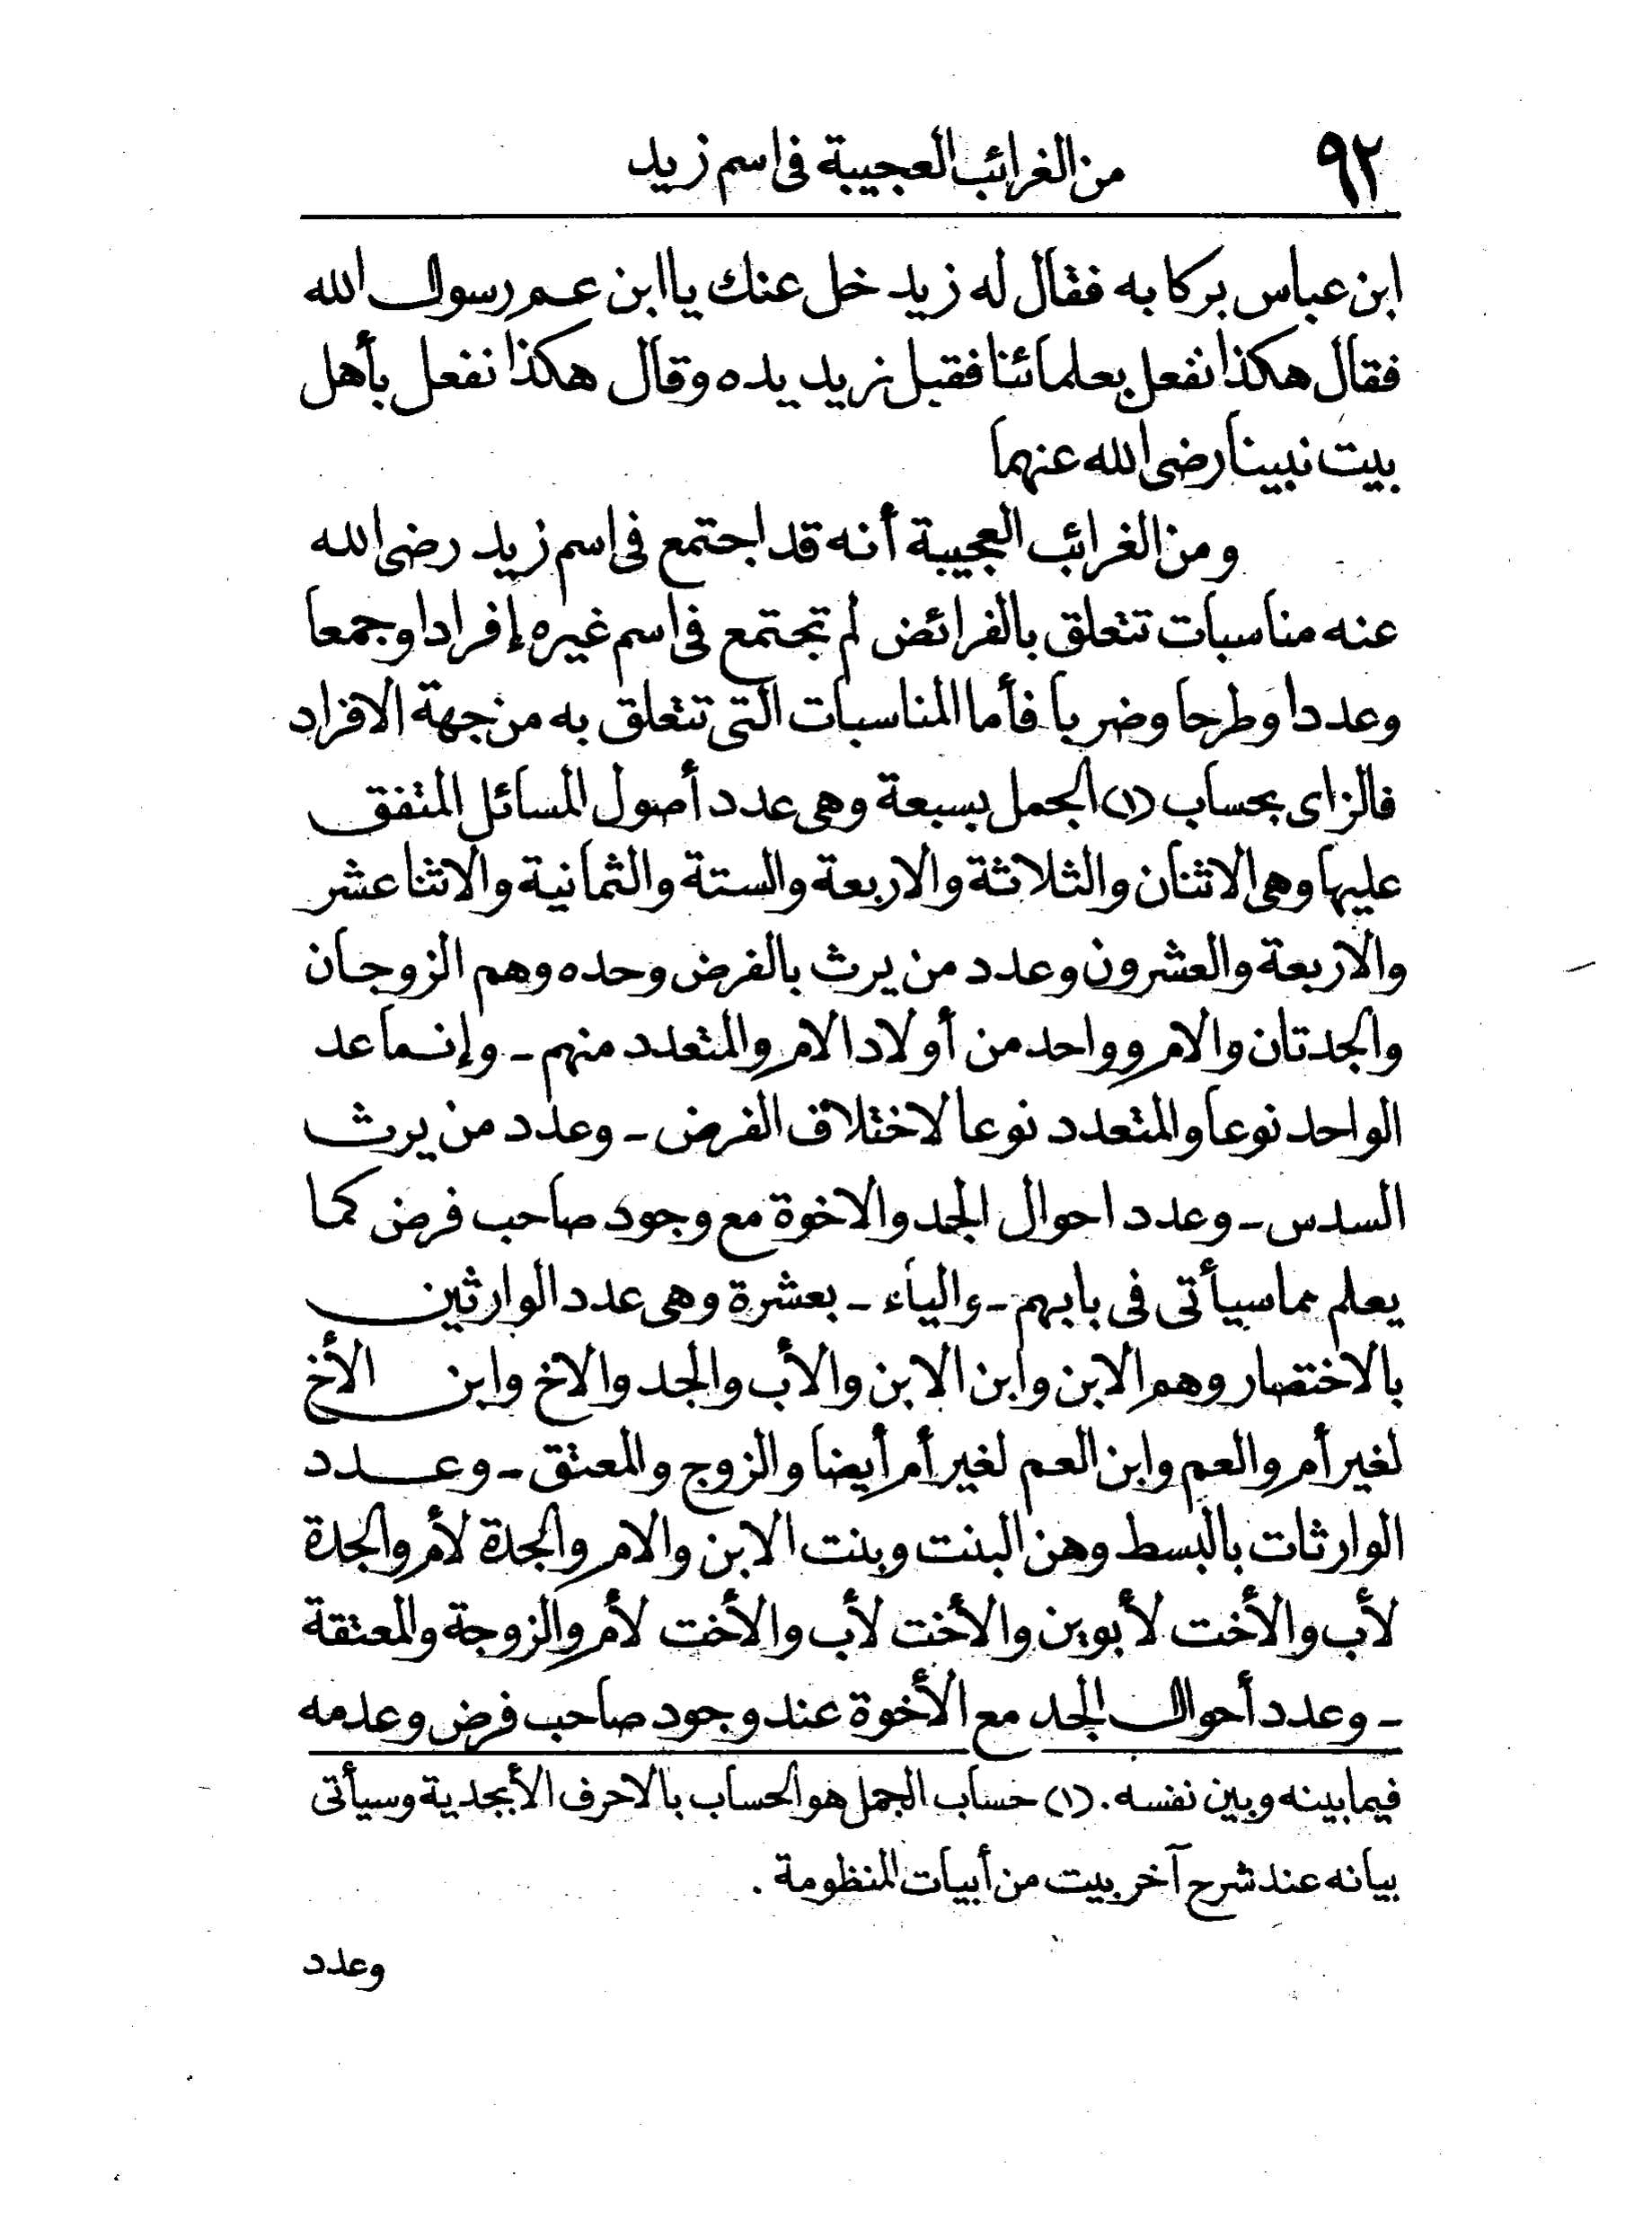 ٩٢ من الغرائب العجيبة فى اسم زيد
ابن عباس بركابه فقال له زيد خل عنك يا ابن عم رسول الله
فقال هكذا نفعل بعلمائنا فقبل زيد يده وقال هكذا نفعل بأهل
بيت نبينا رضى الله عنهما
ومن الغرائب العجيبة أنه قد اجتمع فى اسم زيد رضى الله
عنه مناسبات تتعلق بالفرائض لم تجتمع فى اسم غيره إفرادا وجمعا
وعددا وطرحا وضربا فأما المناسبات التى تتعلق به من جهة الافراد
فالزاى بحساب (١) الجمل بسبعة وهى عدد أصول المسائل المتفق
عليها وهى الاثنان والثلاثة والاربعة والستة والثمانية والاثنا عشر
والاربعة والعشرون وعدد من يرث بالفرض وحده وهم الزوجان
والجدتان والام وواحد من أولاد الام والمتعدد منهم - وإنما عد
الواحد نوعا والمتعدد نوعا لاختلاف الفرض - وعدد من يرث
السدس - وعدد احوال الجد والاخوة مع وجود صاحب فرض كما
يعلم مما سيأتى فى بابهم - والياء - بعشرة وهى عدد الوارثين
بالاختصار وهم الابن وابن الابن والأب والجد والاخ وابن الأخ
لغير أم والعم وابن العم لغير أم أيضا والزوج والمعتق - وعدد
الوارثات بالبسط وهن البنت وبنت الابن والام والجدة لأم والجدة
لأب والأخت لأبوين والأخت لأب والأخت لأم والزوجة والمعتقة
- وعدد أحوال الجد مع الأخوة عند وجود صاحب فرض وعدمه
فيما بينه وبين نفسه. (١) حساب الجمل هو الحساب بالاحرف الأبجدية وسيأتى
بيانه عند شرح آخر بيت من أبيات المنظومة .
وعدد